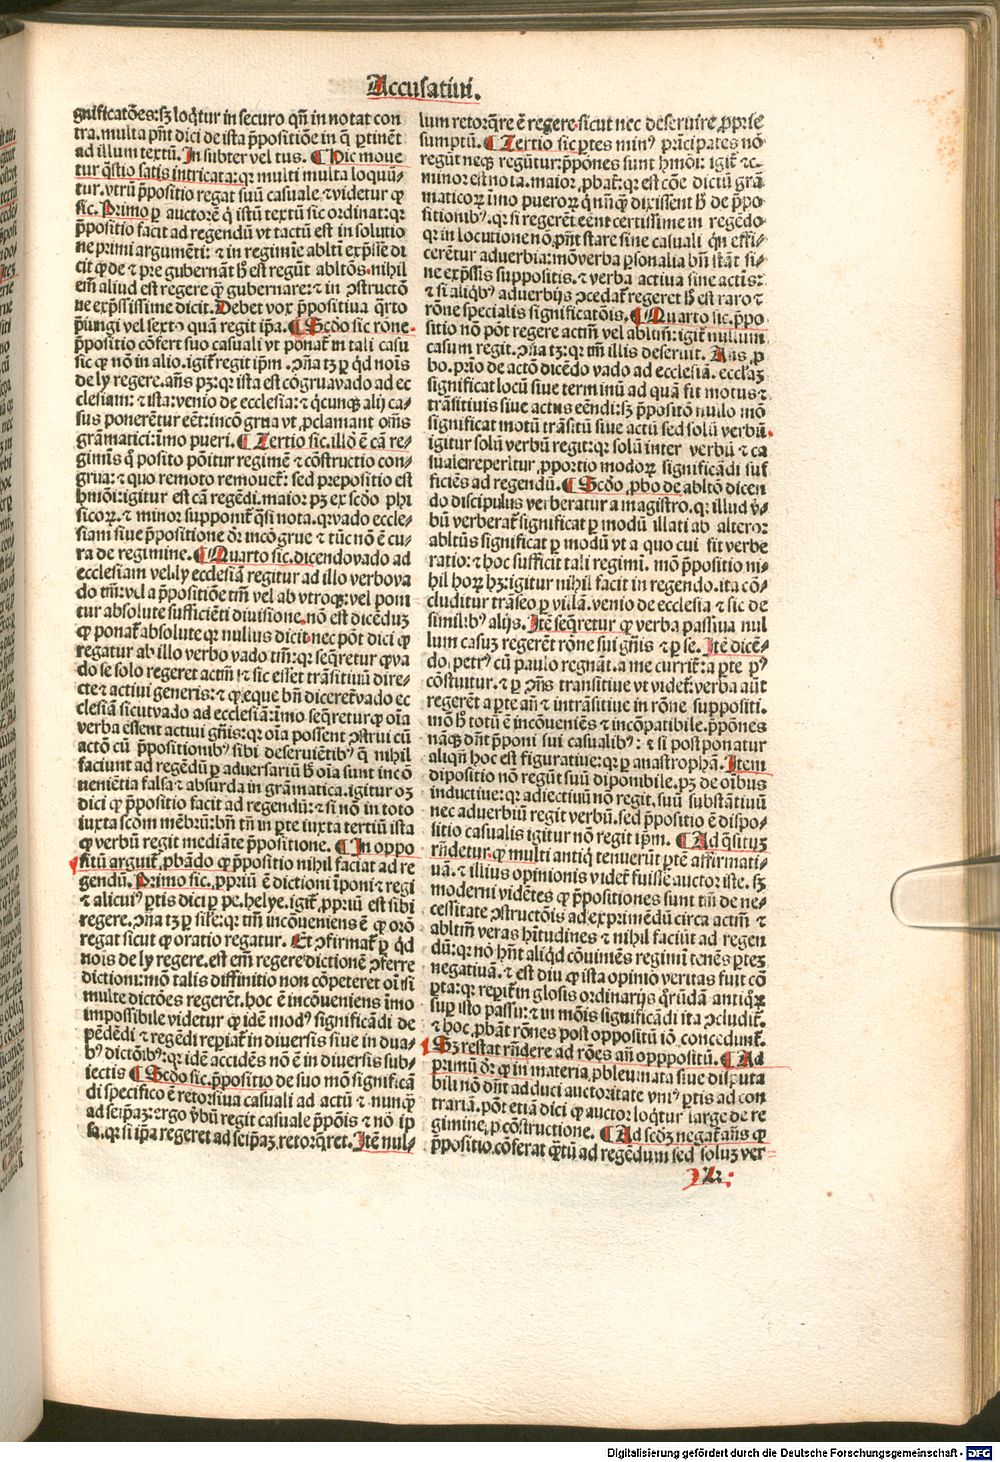 Accusatiui.
gnificatões: sꝫ loq̃tur in securo qñ in notat con
tra. multa pñt dici de ista p̃positiõe in q̃ ꝑtinēt
ad illum textū. In subter vel tus. ¶ Hic moue
tur q̃stio satis intricata: qꝛ multi multa loquū-
tur. vtrū p̃positio regat suū casuale ⁊ videtur ꝙ
sic. Primo ꝑ auctorē q̇ istū textū sic ordinat: qꝛ
p̃positio facit ad regendū vt tactū est in solutio
ne primi argumēti: ⁊ in regimie ablti exp̃sse di
cit ꝙ de ⁊ pre gubernāt hͦ est regūt ablt̃os. nihil
em̃ aliud est regere ꝙ gubernare: ⁊ in ꝯstructõ
ne exp̃ssissime dicit. Debet vox p̃positiua q̃rto
p̃iungi vel sexto quā regit ip̃a. ¶ Scd̃o sic rõne.
p̃positio cõfert suo casuali vt ponat᷑ in tali casu
sic ꝙ nõ in alio. igit᷑ regit ip̃m. ꝯña tꝫ ꝑ q̇d noīs
de ly regere. añs pꝫ: qꝛ ista est cõgrua vado ad ec
clesiam: ⁊ ista: venio de ecclesia: ⁊ q̇cunqꝫ alij ca-
sus ponerētur eēt: incõgrua vt ꝓclamant oms̃
grāmatici: īmo pueri. ¶ Tertio sic. illd̃ ē cā re-
giminis q̃ posito põitur regimē ⁊ cõstructio con-
grua: ⁊ quo remoto remouet᷑: sed prepositio est
hmõi: igitur est cā regēdi. maior pꝫ ex scd̃o phi
sicoꝝ. ⁊ minor supponit᷑ q̃si nota. qꝛ vado eccle-
siam siue p̃positione dr̃ incõgrue ⁊ tūc nõ ē cu-
ra de regimine. ¶ Quarto sic. dicendo vado ad
ecclesiam vel ly ecclesiā regitur ad illo verbo va
do tm̃: vel a p̃positiõe tm̃ vel ab vtroqꝫ: vel poni
tur absolute sufficiēti diuisione. nõ est dicēdūꝫ
ꝙ ponat᷑ absolute qꝛ nullus dicit. nec põt dici ꝙ
regatur ab illo verbo vado tm̃: qꝛ seq̃retur ꝙ va
do se solo regeret actm̃ ⁊ sic esset trāsitiuū dire-
cte ⁊ actiui generis: ⁊ ꝙ eque bñ diceret᷑ vado ec
clesiā sicut vado ad ecclesiā: īmo seq̃retur ꝙ oīa
verba essent actiui gñis: qꝛ oīa possent ꝯstrui cū
actõ cū p̃positionibꝰ sibi deseruiētibꝰ q̃ nihil
faciunt ad regēdū ꝑ aduersariū hͦ oīa sunt incõ
ueniētia falsa ⁊ absurda in grāmatica. igitur oꝫ
dici ꝙ p̃positio facit ad regendū: ⁊ si nõ in toto
iuxta scd̃m mēbrū: bñ tñ in ꝑte iuxta tertiū ista
ꝙ verbū regit mediāte p̃positione. ¶ In oppo
sitū arguit᷑. ꝓbādo ꝙ p̃positio nihil faciat ad re
gendū. Primo sic. ꝓpriū ē dictioni īponi ⁊ regi
⁊ alicuiꝰ ꝑtis dici ꝑ pe. helye. igit᷑ ꝓpriū est sibi
regere. ꝯña tꝫ ꝑ sile: qꝛ tm̃ incõueniens ē ꝙ orõ
regat sicut ꝙ oratio regatur. Et ꝯfirmat᷑ ꝑ q̇d
nois de ly regere. est em̃ regere dictionē ꝯferre
dictioni: mõ talis diffinitio non cõpeteret oī si
multe dictões regerēt. hoc ē incõueniens īmo
impossibile videtur ꝙ idē modꝰ significādi de
pēdēdi ⁊ regēdi reꝑiat᷑ in diuersis siue in dua-
bꝰ dictõibꝰ: qꝛ idē accidēs nõ ē in diuersis sub-
iectis ¶ Scd̃o sic. p̃positio de suo mõ significā
di specifico ē retorsiua casuali ad actū ⁊ nunꝙ̃
ad seip̃aꝫ: ergo v̓bū regit casuale p̃põis ⁊ nõ ip
sa. qꝛ si ip̃a regeret ad seip̃aꝫ retorq̃ret. Itē nul-
lum retorq̃re ē regere. sicut nec deseruire ꝓpr̃ie
sumptū. ¶ Tertio sic ꝑtes minꝰ principales nõ
regūt neqꝫ regūtur: p̃põnes sunt hmõi: igit᷑ ⁊c.
minor est nota. maior ꝓbat᷑: qꝛ est cõe dictū grā
maticoꝝ īmo pueroꝝ q̇ nūꝙ̃ dixissent hͦ de p̃po
sitionibꝰ. qꝛ si regerēt eēnt certissime in regēdo.
qꝛ in locutione nõ pñt stare sine casuali q̇n effi-
cerētur aduerbia: mõ verba ꝑsonalia bñ stāt si-
ne exp̃ssis suppositis. ⁊ verba actiua sine actis:
⁊ si aliq̇bꝰ aduerbijs ꝯcedat᷑ regeret hͦ est raro ⁊
rõne specialis significatõis. ¶ Quarto sic. p̃po
sitio nõ põt regere actm̃ vel abltm̃: igit᷑ nullum
casum regit. ꝯña tꝫ: qꝛ tm̃ illis deseruit. Añs ꝓ
bo. prio de actõ dicēdo vado ad ecclesiā. eccl̃aꝫ
significat locū siue terminū ad quā fit motus ⁊
trāsitiuis siue actus eēndi: sꝫ p̃positõ nullo mõ
significat motū trāsitū siue actū sed solū verbū.
igitur solū verbū regit: qꝛ solū inter verbū ⁊ ca
suale reperitur ꝓportio modoꝝ significādi suf
ficiēs ad regendū. ¶ Scd̃o ꝓbo de abltõ dicen
do discipulus verberatur a magistro. qꝛ illud v̓-
bū verberat᷑ significat ꝑ modū illati ab altero:
abltūs significat ꝑ modū vt a quo cui fit verbe
ratio: ⁊ hoc sufficit tali regimī. mõ p̃positio ni-
hil hoꝝ hꝫ: igitur nihil facit in regendo. ita cõ-
cluditur trāseo ꝑ villā. venio de ecclesia ⁊ sic de
similibꝰ alijs. Itē seq̃retur ꝙ verba passiua nul
lum casuꝫ regerēt rõne sui gñis ⁊ ꝑ se. Itē dicē-
do. petrꝰ cū paulo regnāt. a me currit᷑: a ꝑte pꝰ
cõstuitur. ⁊ ꝑ ꝯñs transitiue vt videt᷑: verba aūt
regerēt a ꝑte añ ⁊ intrāsitiue in rõne suppositi.
mõ hͦ totū ē incõueniēs ⁊ incõpatibile. p̃põnes
nāqꝫ dñt p̃poni sui casualibꝰ: ⁊ si postponatur
aliqñ hoc est figuratiue: qꝛ ꝑ anastrophā. Item
dipositio nõ regūt suū diponibile. pꝫ de oībus
inductiue: qꝛ adiectiuū nõ regit suū substātiuū
nec aduerbiū regit verbū. sed p̃positio ē dispo-
sitio casualis igitur nõ regit ip̃m. ¶ Ad q̃situꝫ
rñdetur. ꝙ multi antiq̇ tenuerūt ꝑtē affirmati-
uā. ⁊ illius opinionis videt᷑ fuisse auctor iste. sꝫ
moderni vidētes ꝙ p̃positiones sunt tm̃ de ne-
cessitate ꝯstructõis ad exprimēdū circa actm̃ ⁊
abltm̃ veras hitudines ⁊ nihil faciūt ad regen
dū: qꝛ nõ hñt aliq̇d cõuiniēs regimī tenēs ꝑteꝫ
negatiuā. ⁊ est diu ꝙ ista opinio veritas fuit cõ
ꝑta: qꝛ reꝑit᷑ in glosis ordinarijs q̃rūdā antiq̇ꝝ
suꝑ isto passu: ⁊ in mõis significādi ita ꝯcludit᷑.
⁊ hoc ꝓbāt rõnes post oppositū iõ concedunt᷑.
Sꝫ restat rñdere ad rões añ opppositū. ¶ Ad
primū dr̃ ꝙ in materia ꝓbleumata siue disputa
bili nõ dñt adduci auctoritate vniꝰ ꝑtis ad con
trariā. põt etiā dici ꝙ auctor loq̃tur large de re
gimine ꝓ cõstructione. ¶ Ad scd̃ꝫ negat᷑ añs ꝙ
p̃positio cõferat q̃tū ad regēdum sed soluꝫ ver-